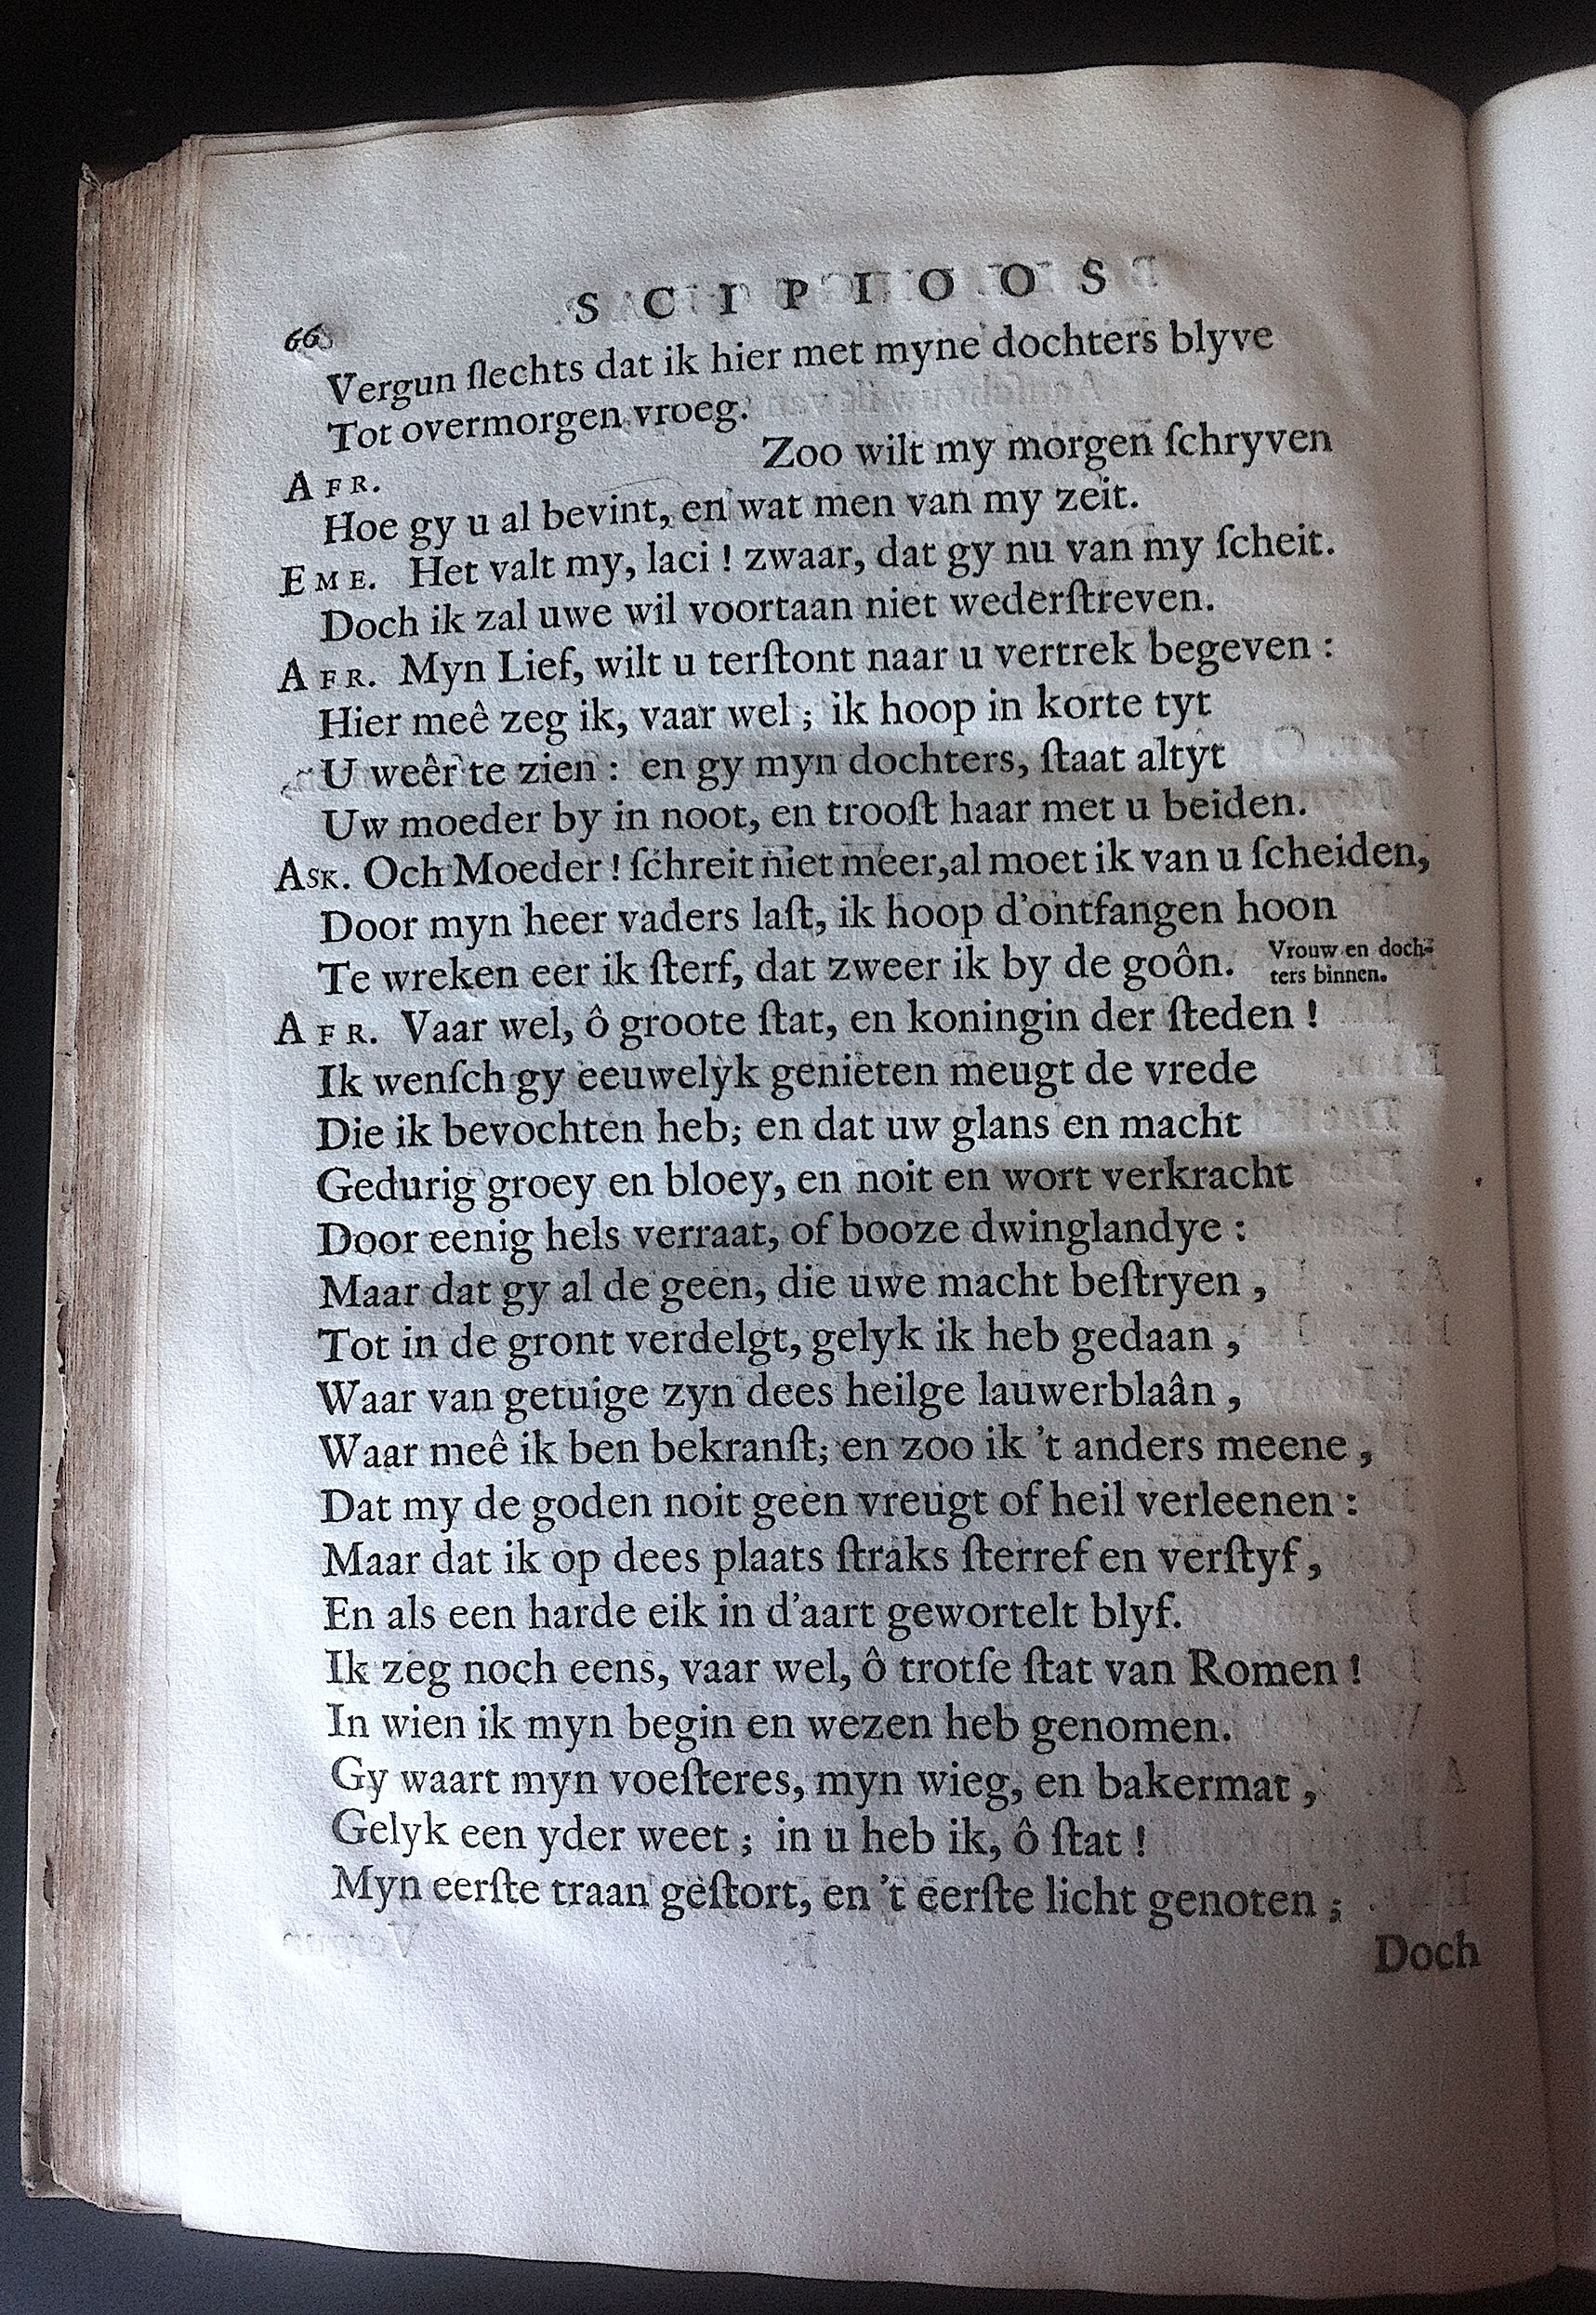 66 SCIPIOOS
Vergun ſlechts dat ik hier met myne dochters blyve
Tot overmorgen vroeg.
AFR. Zoo wilt my morgen ſchryven
Hoe gy u al bevint, en wat men van my zeit.
EME. Het valt my, laci ! zwaar, dat gy nu van my ſcheit.
Doch ik zal uwe wil voortaan niet wederſtreven.
AFR. Myn Lief, wilt u terſtont naar u vertrek begeven :
Hier meê zeg ik, vaar wel ; ik hoop in korte tyt
U weêr te zien : en gy myn dochters, ſtaat altyt
Uw moeder by in noot, en trooſt haar met u beiden.
ASK. Och Moeder ! ſchreit niet meer, al moet ik van u ſcheiden,
Door myn heer vaders laſt, ik hoop d'ontfangen hoon
Te wreken eer ik ſterf, dat zweer ik by de goôn. Vrouw en doch-
ters binnen.
AFR. Vaar wel, ô groote ſtat, en koningin der ſteden !
Ik wenſch gy eeuwelyk genieten meugt de vrede
Die ik bevochten heb; en dat uw glans en macht
Gedurig groey en bloey, en noit en wort verkracht
Door eenig hels verraat, of booze dwinglandye :
Maar dat gy al de geen, die uwe macht beſtryen ,
Tot in de gront verdelgt, gelyk ik heb gedaan ,
Waar van getuige zyn dees heilge lauwerblaân ,
Waar meê ik ben bekranſt; en zoo ik 't anders meene ,
Dat my de goden noit geen vreugt of heil verleenen :
Maar dat ik op dees plaats ſtraks ſterref en verſtyf ,
En als een harde eik in d'aart gewortelt blyf.
Ik zeg noch eens, vaar wel, ô trotſe ſtat van Romen !
In wien ik myn begin en wezen heb genomen.
Gy waart myn voeſteres, myn wieg, en bakermat ,
Gelyk een yder weet ; in u heb ik, ô ſtat !
Myn eerſte traan geſtort, en 't eerſte licht genoten ;
Doch